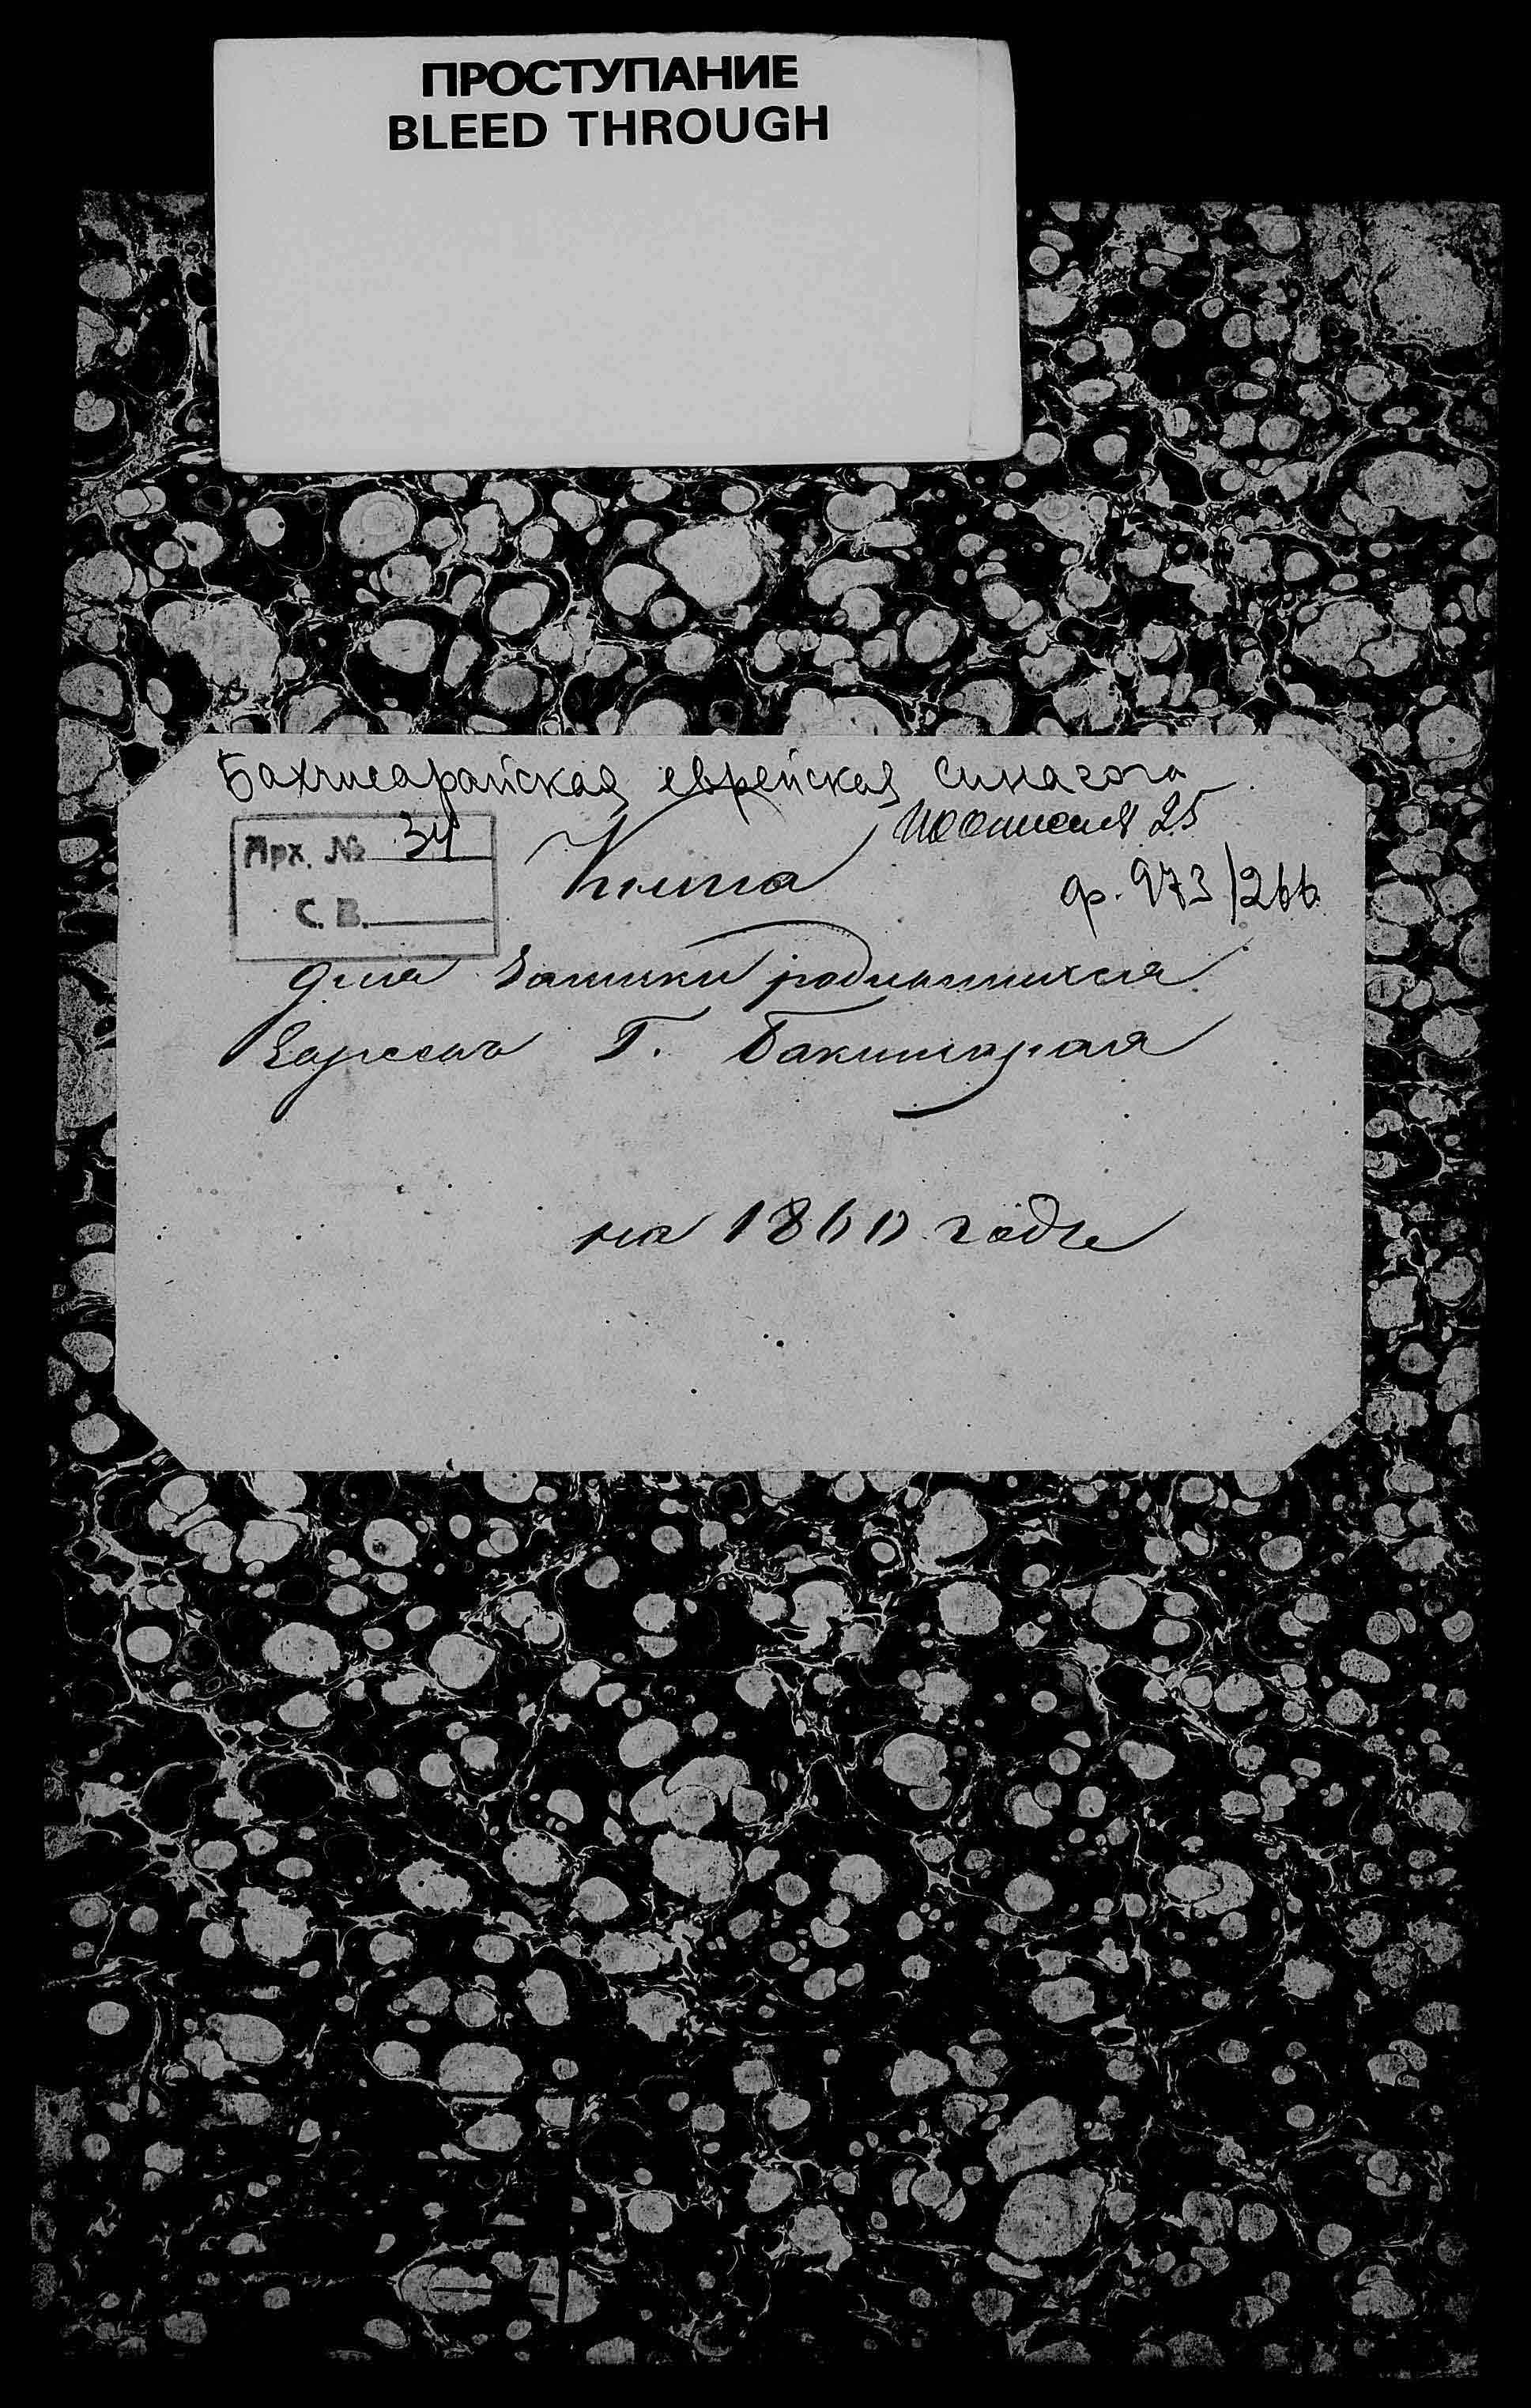 ПРОСТУПАНИЕ
BLEED THROUGH
Бахчисарайская еврейская синагога
по описи 25
Арх. № 34
Книга
ф. 973/266
С. В.
для записки родившихся
Г. Бакчисарая
на 1860 годъ